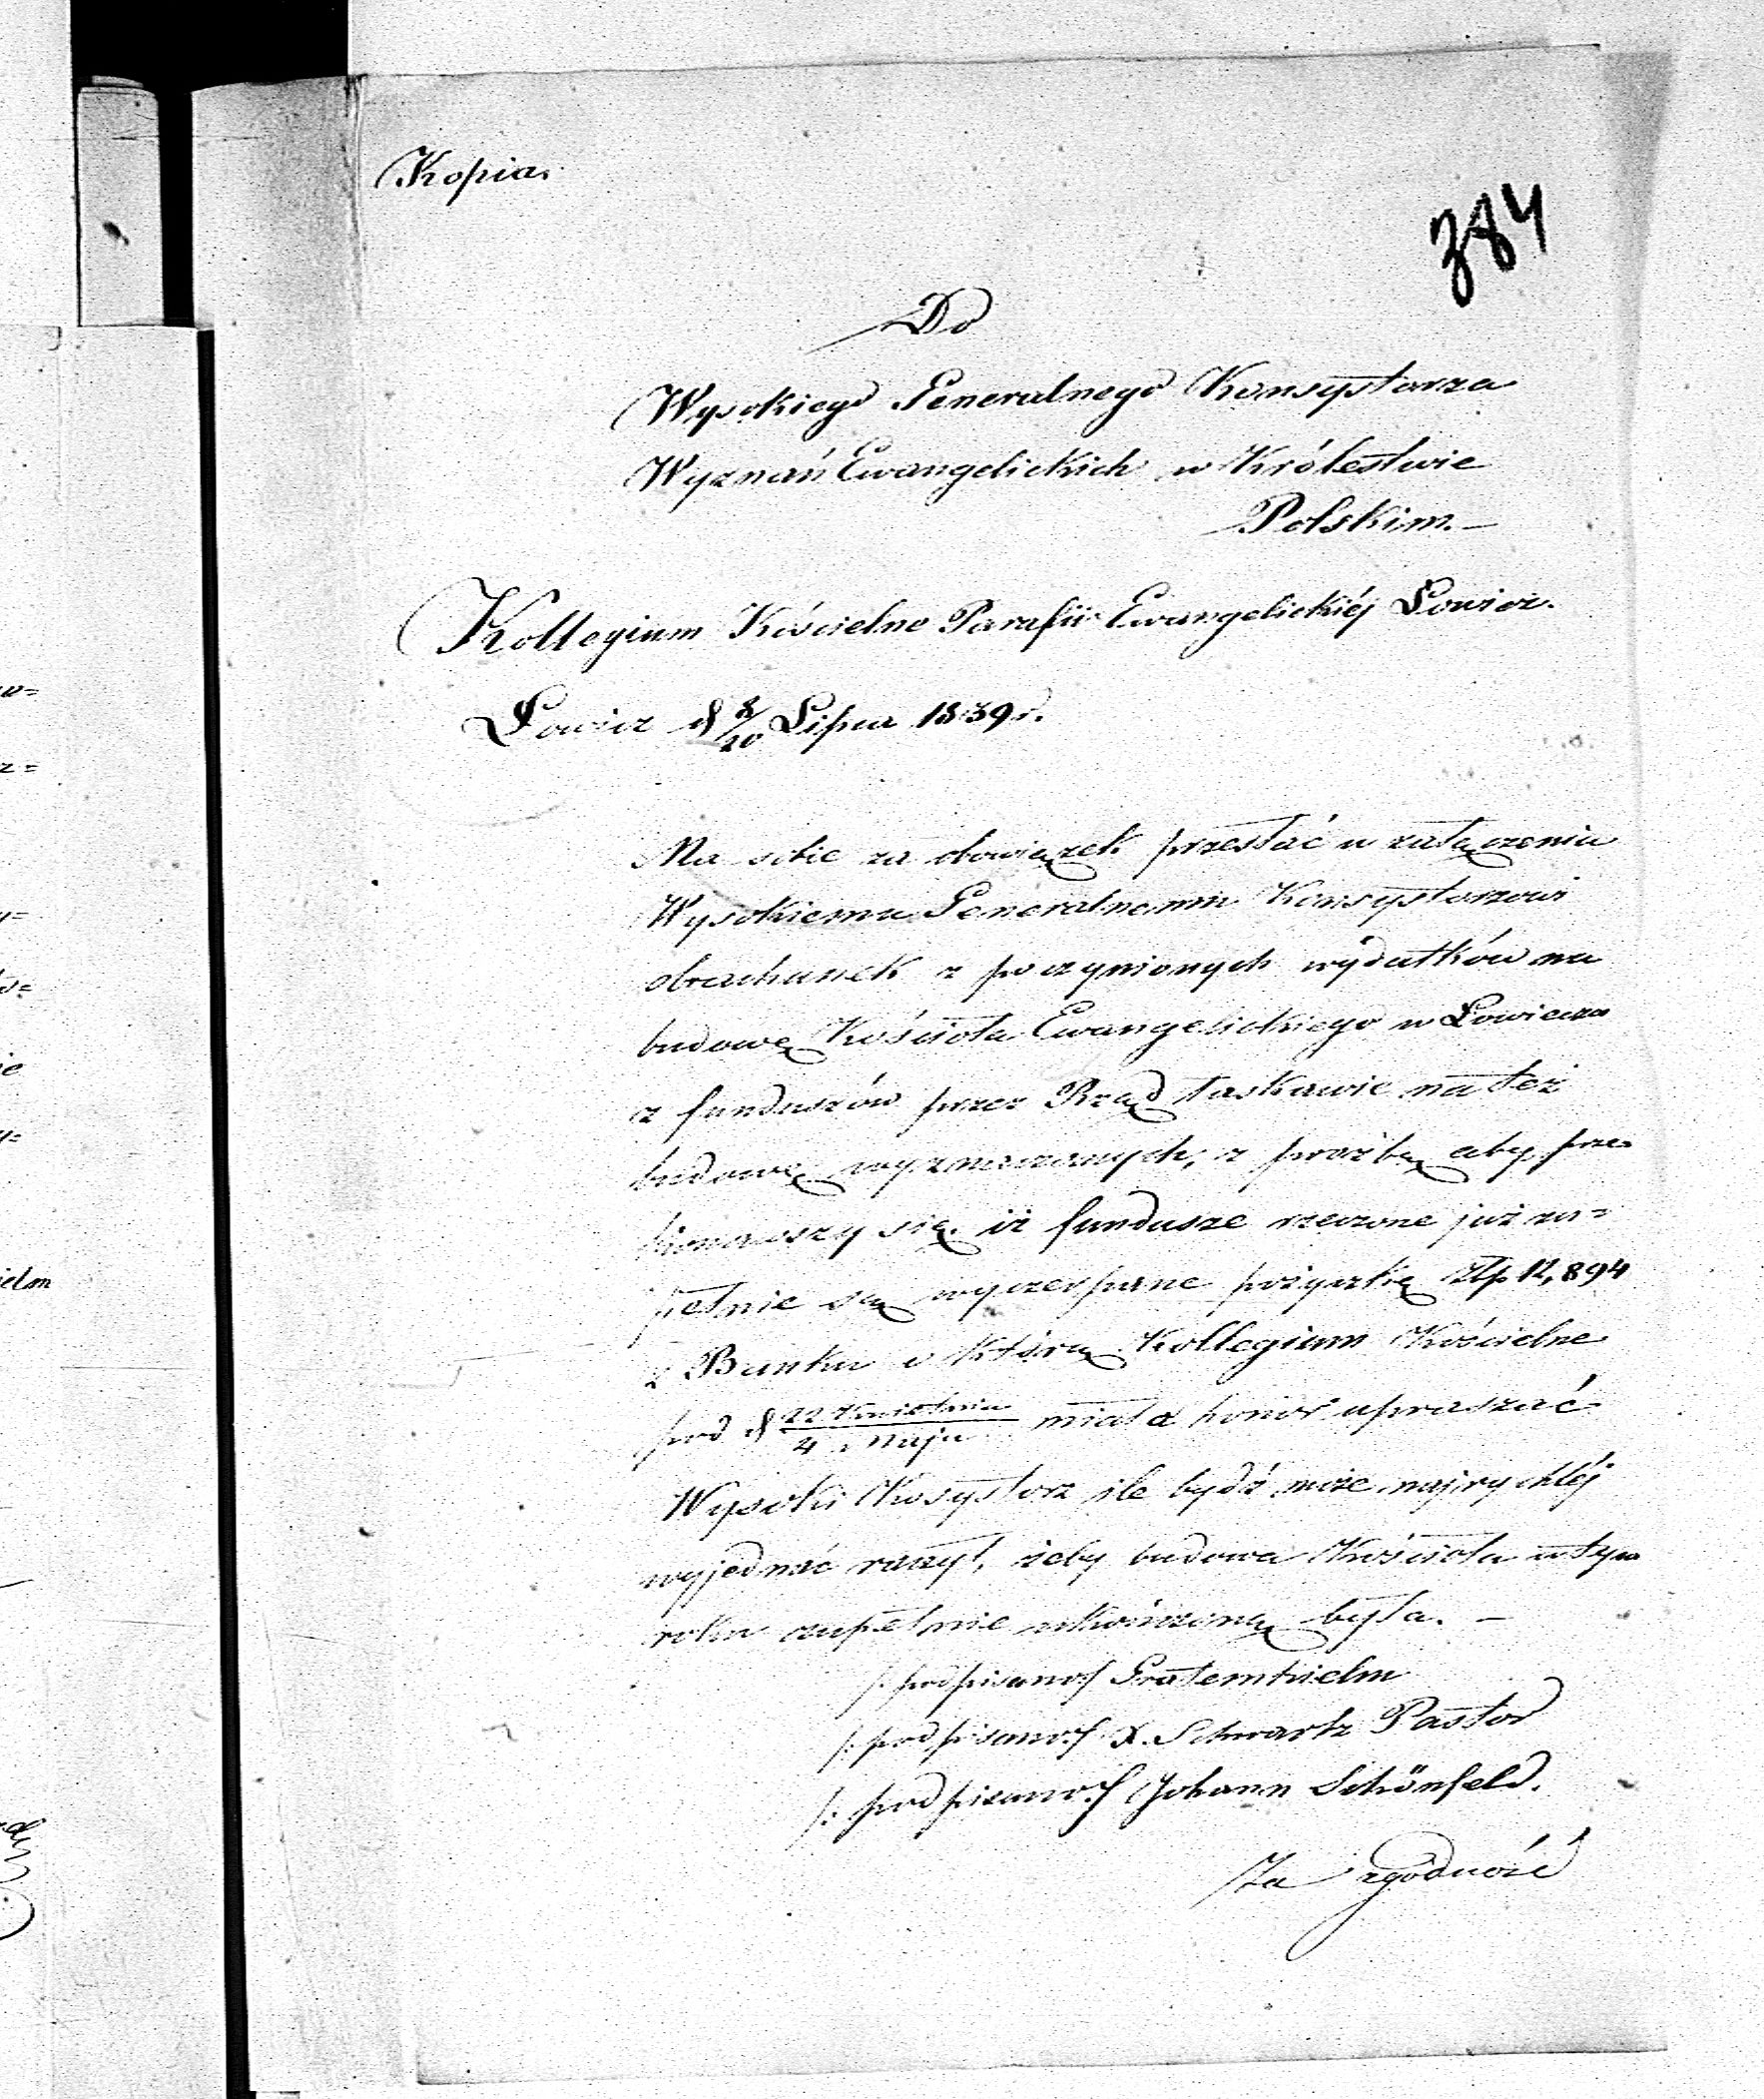 Kopia.
384
Do
Wysokiego Generalnego Konsystorza
Wyznań Ewangelickich w Królestwie
Polskim.—
Kollegium Kościelne Parafii Ewangelickiéj Łowicz.
Łowicz d 8/20 Lipca 1839 r.
Ma sobie za obowiązek przesłać w załączeniu
Wysokiemu Generalnemu Konsystorzowi
obrachunek z poczynionych wydatków na
budowę Kościoła Ewangelickiego w Łowiczu
z funduszów przez Rząd łaskawie na też
budowę wyznaczonych, z prozbą aby prze
konawszy się iż fundusze rzeczone już zu=
pełnie są wyczerpane pożyczkę Złp 12,894
z Banku o którą Kollegium Kościelne
pod d 22 Kwietnia / 4 Maja miało honor upraszać
Wysoki Kosystorz ile bydź może najrychléj
wyjednać raczył, żeby budowa Kościoła w tym
roku zupełnie ukończoną była. —
/: podpisano :/ Gratemhielm
/: podpisano :/ X. Schwartz Pastor
/: podpisano :/ Johann Schönfeld.
Za zgodność
w=
z=
y=
ie
y=
ielm